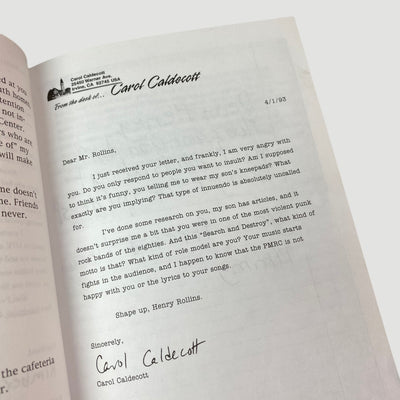 ed at you
uth home,
tention
not in-
Center,
rs who are
e of" my
will make
me doesn't
ne. Friends
never.
the cafeteria
r.
Carol Caldecott
20450 Warner Ave.
Irvine, CA 92745 USA
From the desk of... Carol Caldecott
4/1/93
Dear Mr. Rollins,
I just received your letter, and frankly, I am very angry with
you. Do you only respond to people you want to insult? Am I supposed
to think it's funny, you telling me to wear my son's kneepads? What
exactly are you implying? That type of innuendo is absolutely uncalled
for.
I've done some research on you, my son has articles, and it
doesn't surprise me a bit that you were in one of the most violent punk
rock bands of the eighties. And this "Search and Destroy", what kind of
motto is that? What kind of role model are you? Your music starts
fights in the audience, and I happen to know that the PMRC is not
happy with you or the lyrics to your songs.
Shape up, Henry Rollins.
Sincerely,
Carol Caldecott
Carol Caldecott